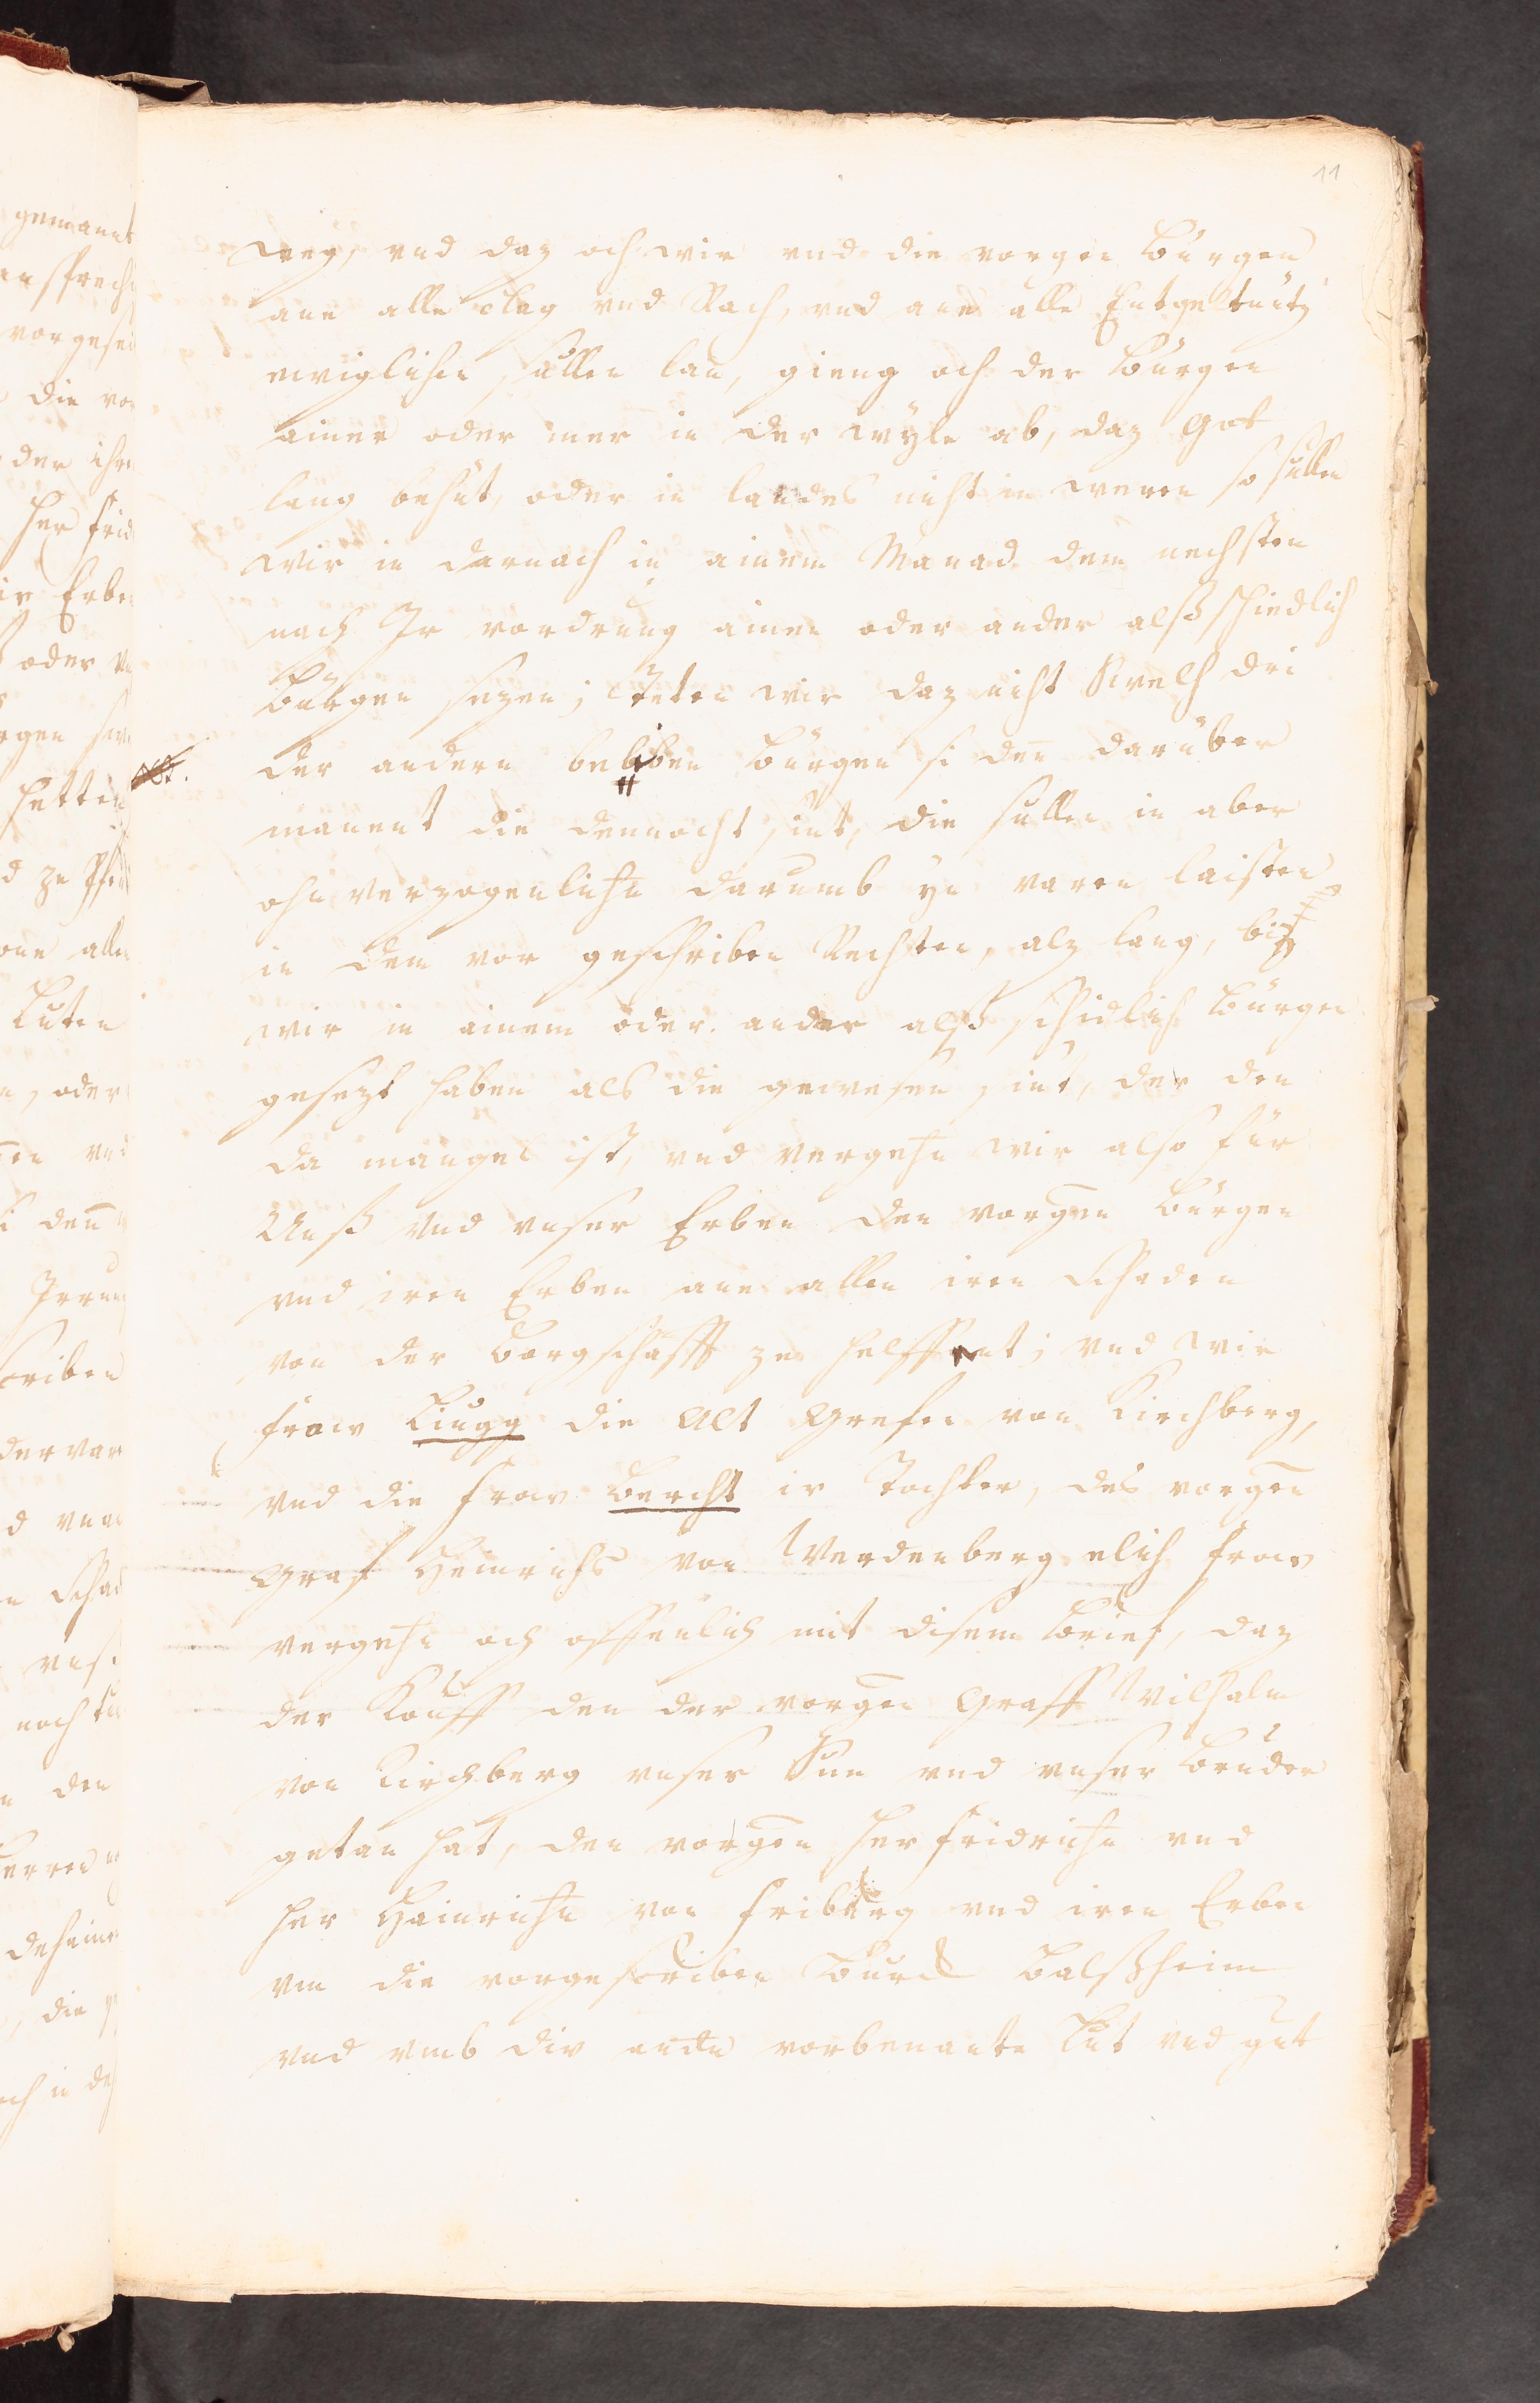 11
weg, vnd daz och wir vnd die vorgen Bürgen
ane alle clag vnd Rach, vnd ane alle Entgeltnütz
ewiglichen süllen lan, gieng och der Bürgen
ainer oder mer in der wyle ab, daz Got
lang behüt, oder in landes nicht in weren so süllen
wir in darnach in ainem Manad dem nechsten
nach Ir vordrung ainen oder ander alß schiedlich
Bürgen sezen; Teten wir daz nicht Swelh dri
der andern beliben Bürgen si den darüber
manent die dennocht sint, die süllen in aber
ohn verzogenlichn darumb yn varen laisten
in dem vor geschriben Rechten, alz lang, biz
wir in ainem oder ander alß schidlich Bürgen
gesezt haben als die gewesen sint, der den
da mangel ist, vnd vergehn wir also für
Unß vnd vnser Erben den vorgen Bürgen
vnd iren Erben ane allen iren Schaden
von der Borgschafft ze helffent; vnd wir
frow Liugg die Alt Grefen von Kirchberg,
vnd die frow Bercht ir Tochter, des vorgen
Graf Heinrichs von Werdenberg elich frow
vergehn och offenlich mit disem Brief, daz
der Kouff den der vorgen Graff Wilhalm
von Kirchberg vnser Sun vnd vnser Bruder
getan hat, den vorgen her fridrichn vnd
her Hainrichn von friberg vnd iren Erben
vm die vorgeschriben Burd Balßheim
vnd vmb div andn vorbenante Lüt vnd güt